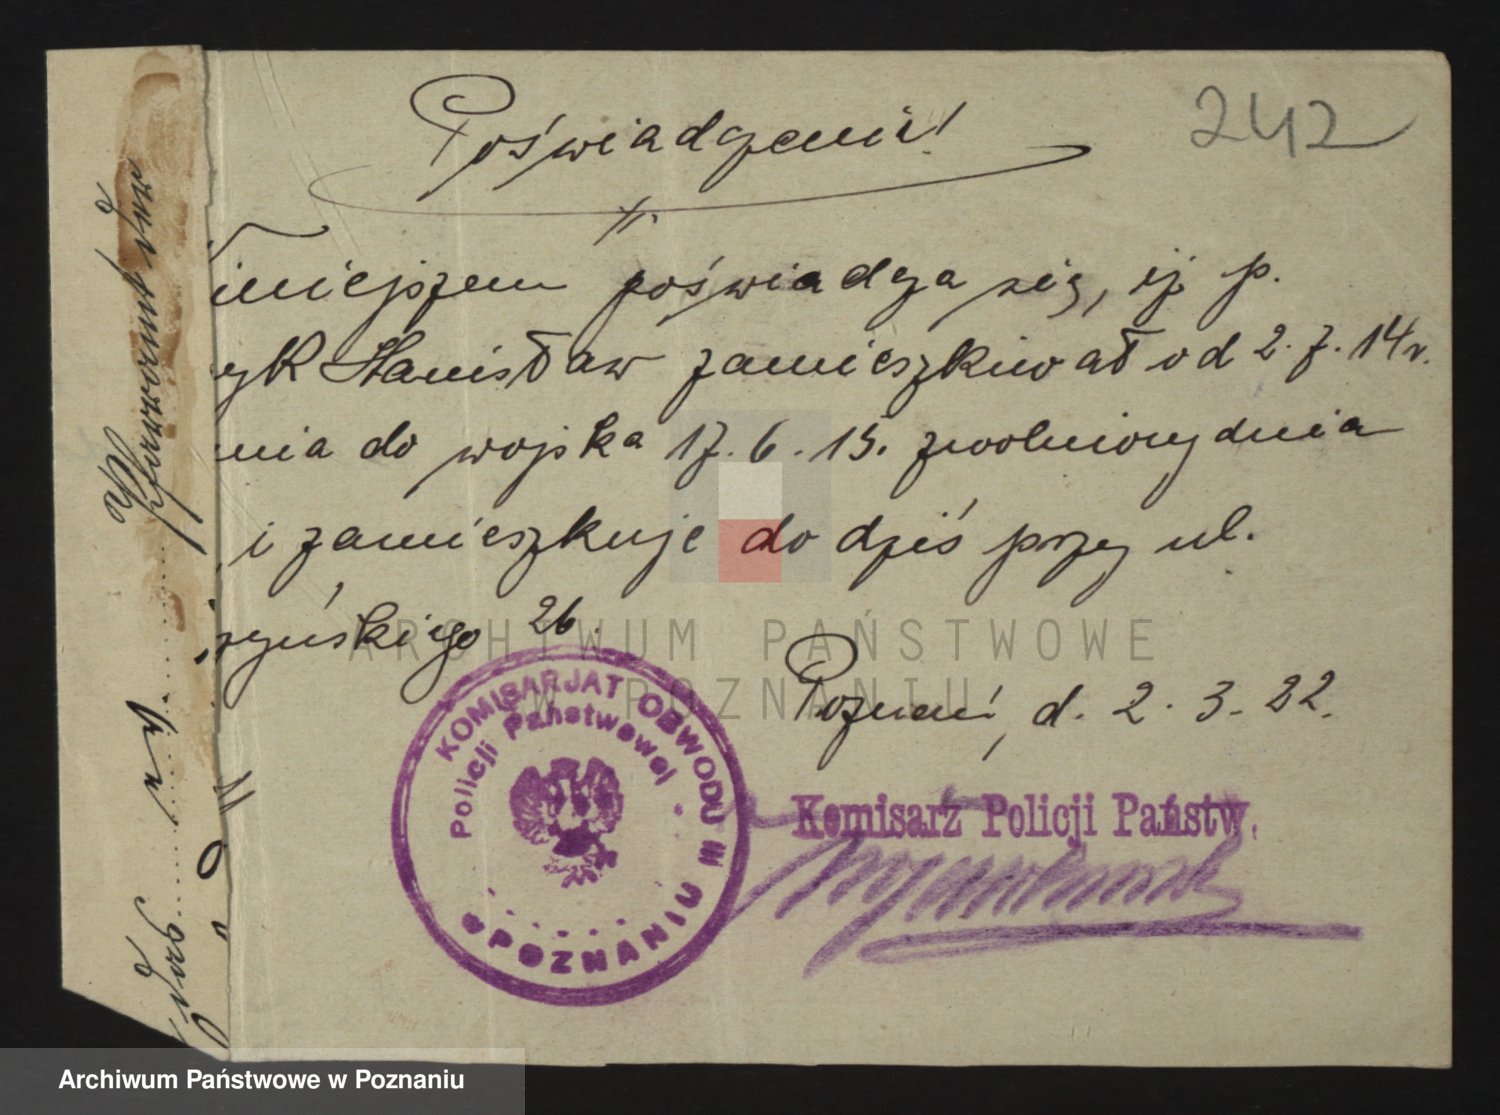 242
Poświadczenie!
Niniejszem poświadcza się, iż p.
yk Stanisław zamieszkiwał od 2.7.14 r.
nia do wojska 17.6.15. zwolniony dnia
i zamieszkuje do dziś przy ul.
zyńskiego 26.
Poznań, d. 2.3.22.
KOMISARJAT OBWODU III
Policji Państwowej
W POZNANIU
Komisarz Policji Państw.
ARCHIWUM PAŃSTWOWE
W POZNANIU
Archiwum Państwowe w Poznaniu